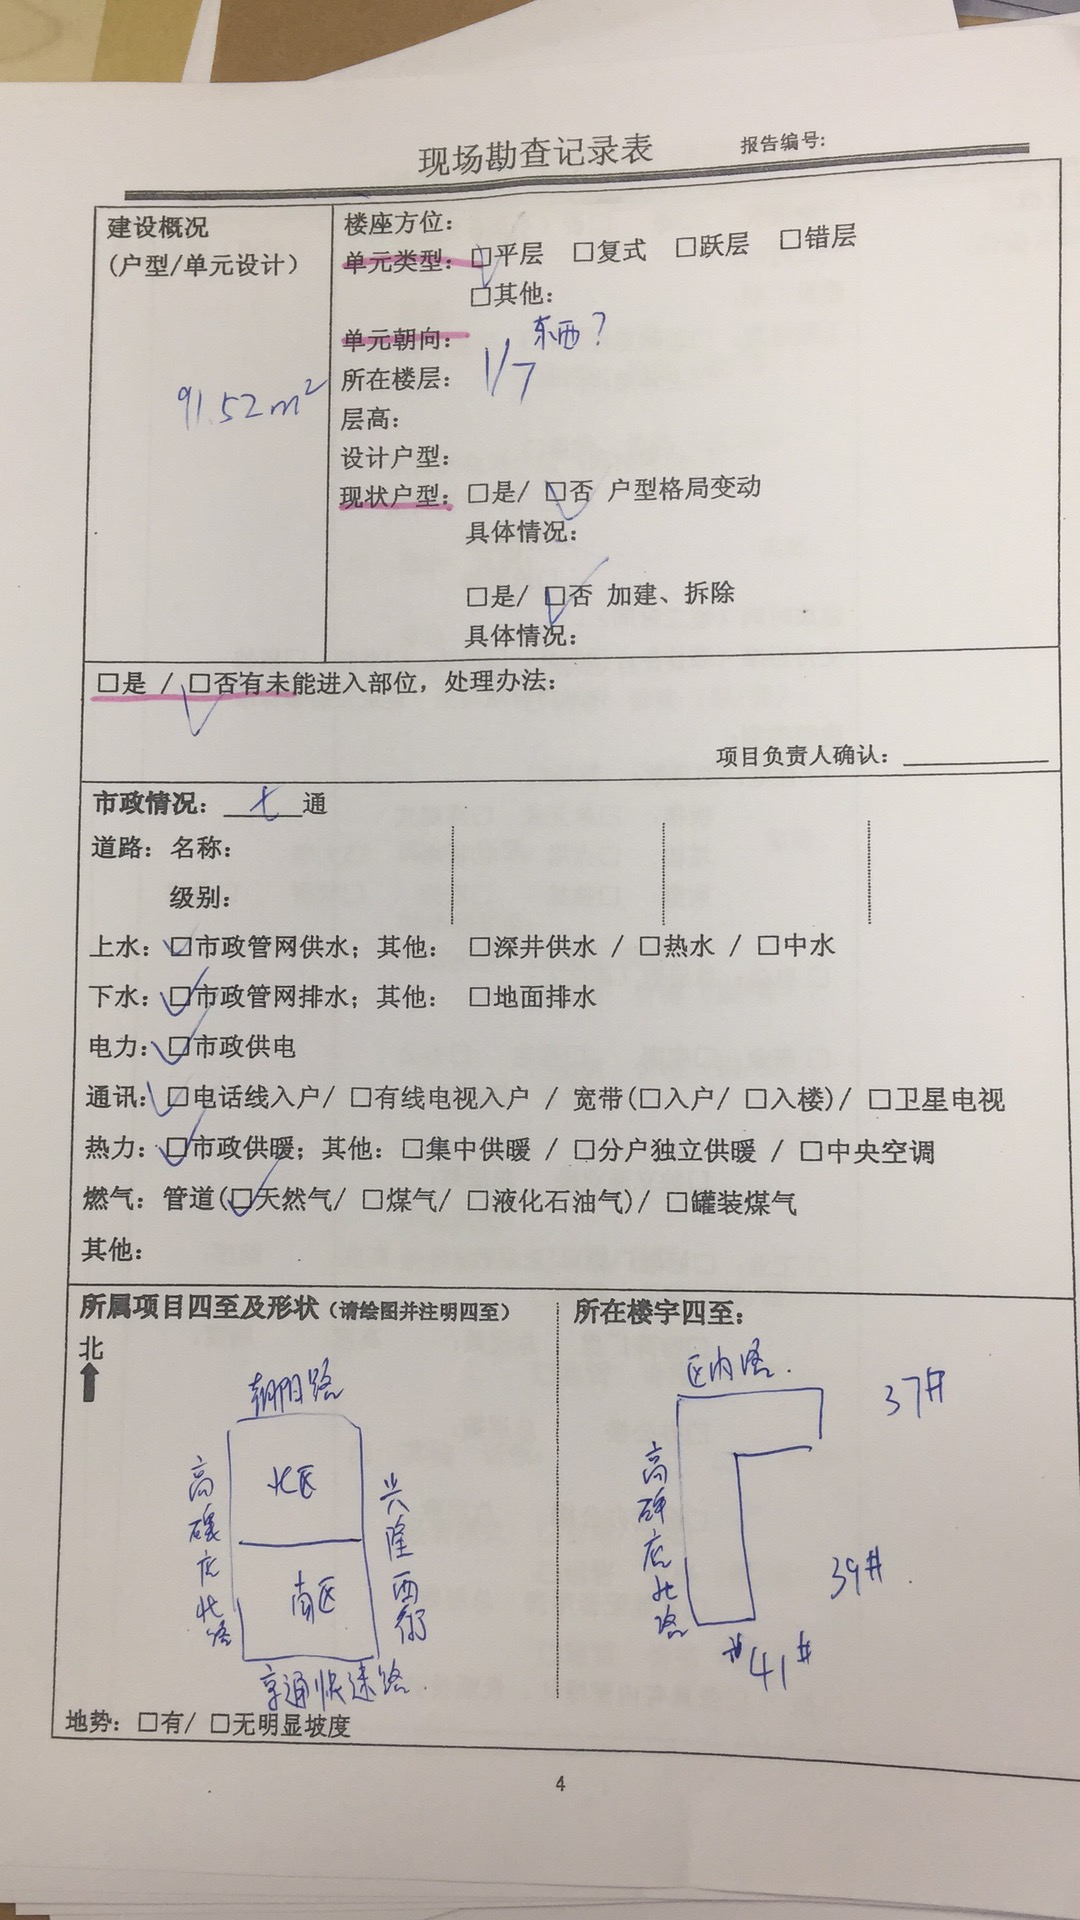 现场勘查记录表
报告编号:
建设概况
(户型/单元设计)
91.52m²
楼座方位:
单元类型: □平层 □复式 □跃层 □错层
□其他:
单元朝向: 东西?
所在楼层: 1/7
层高:
设计户型:
现状户型: □是/ □否 户型格局变动
具体情况:
□是/ □否 加建、拆除
具体情况:
□是 / □否有未能进入部位，处理办法:
项目负责人确认:
市政情况: 七 通
道路: 名称:
级别:
上水: □市政管网供水; 其他: □深井供水 / □热水 / □中水
下水: □市政管网排水; 其他: □地面排水
电力: □市政供电
通讯: □电话线入户/ □有线电视入户 / 宽带(□入户/ □入楼)/ □卫星电视
热力: □市政供暖; 其他: □集中供暖 / □分户独立供暖 / □中央空调
燃气: 管道(□天然气/ □煤气/ □液化石油气)/ □罐装煤气
其他:
所属项目四至及形状(请绘图并注明四至)
北
朝阳路
高碑店北路
北区
南区
兴隆西街
京通快速路
所在楼宇四至:
区内路
37#
高碑店北路
39#
41#
地势: □有/ □无明显坡度
4